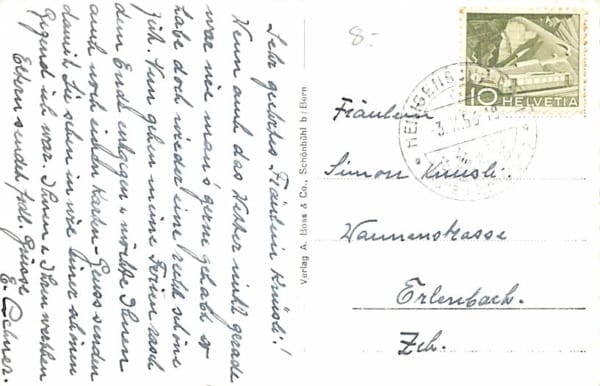 Sehr geehrtes Fräulein Knüsli!
Wenn auch das Wetter nicht gerade
war wie man's gerne gehabt so
habe doch wieder eine recht schöne
Zeit. Nun gehen meine Ferien rasch
dem Ende entgegen u. möchte Ihnen
auch noch einen Karten-Gruss senden
damit Sie sehen in was einer schönen
Gegend ich war. Ihnen u. Ihren werthen
Eltern sendet frdl. Grüsse
E.
Verlag A. Boss & Co., Schönbühl b/Bern
8.-
10 HELVETIA
HEILIGENS
Fräulein
Simon Knüsli
Wannenstrasse
Erlenbach.
Zch.